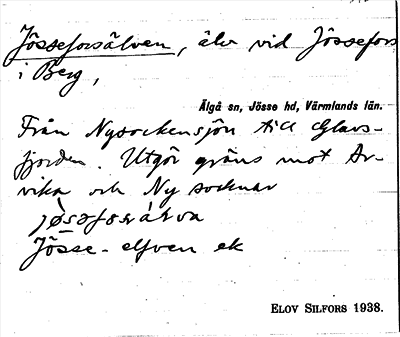 Jösseforsälven, älv vid Jössefors
i Berg,
Älgå sn, Jösse hd, Värmlands län.
Från Nysockensjön till Glafs-
fjorden. Utgör gräns mot Ar-
vika och Ny socknar
Jösse-elfven ek
ELOV SILFORS 1938.